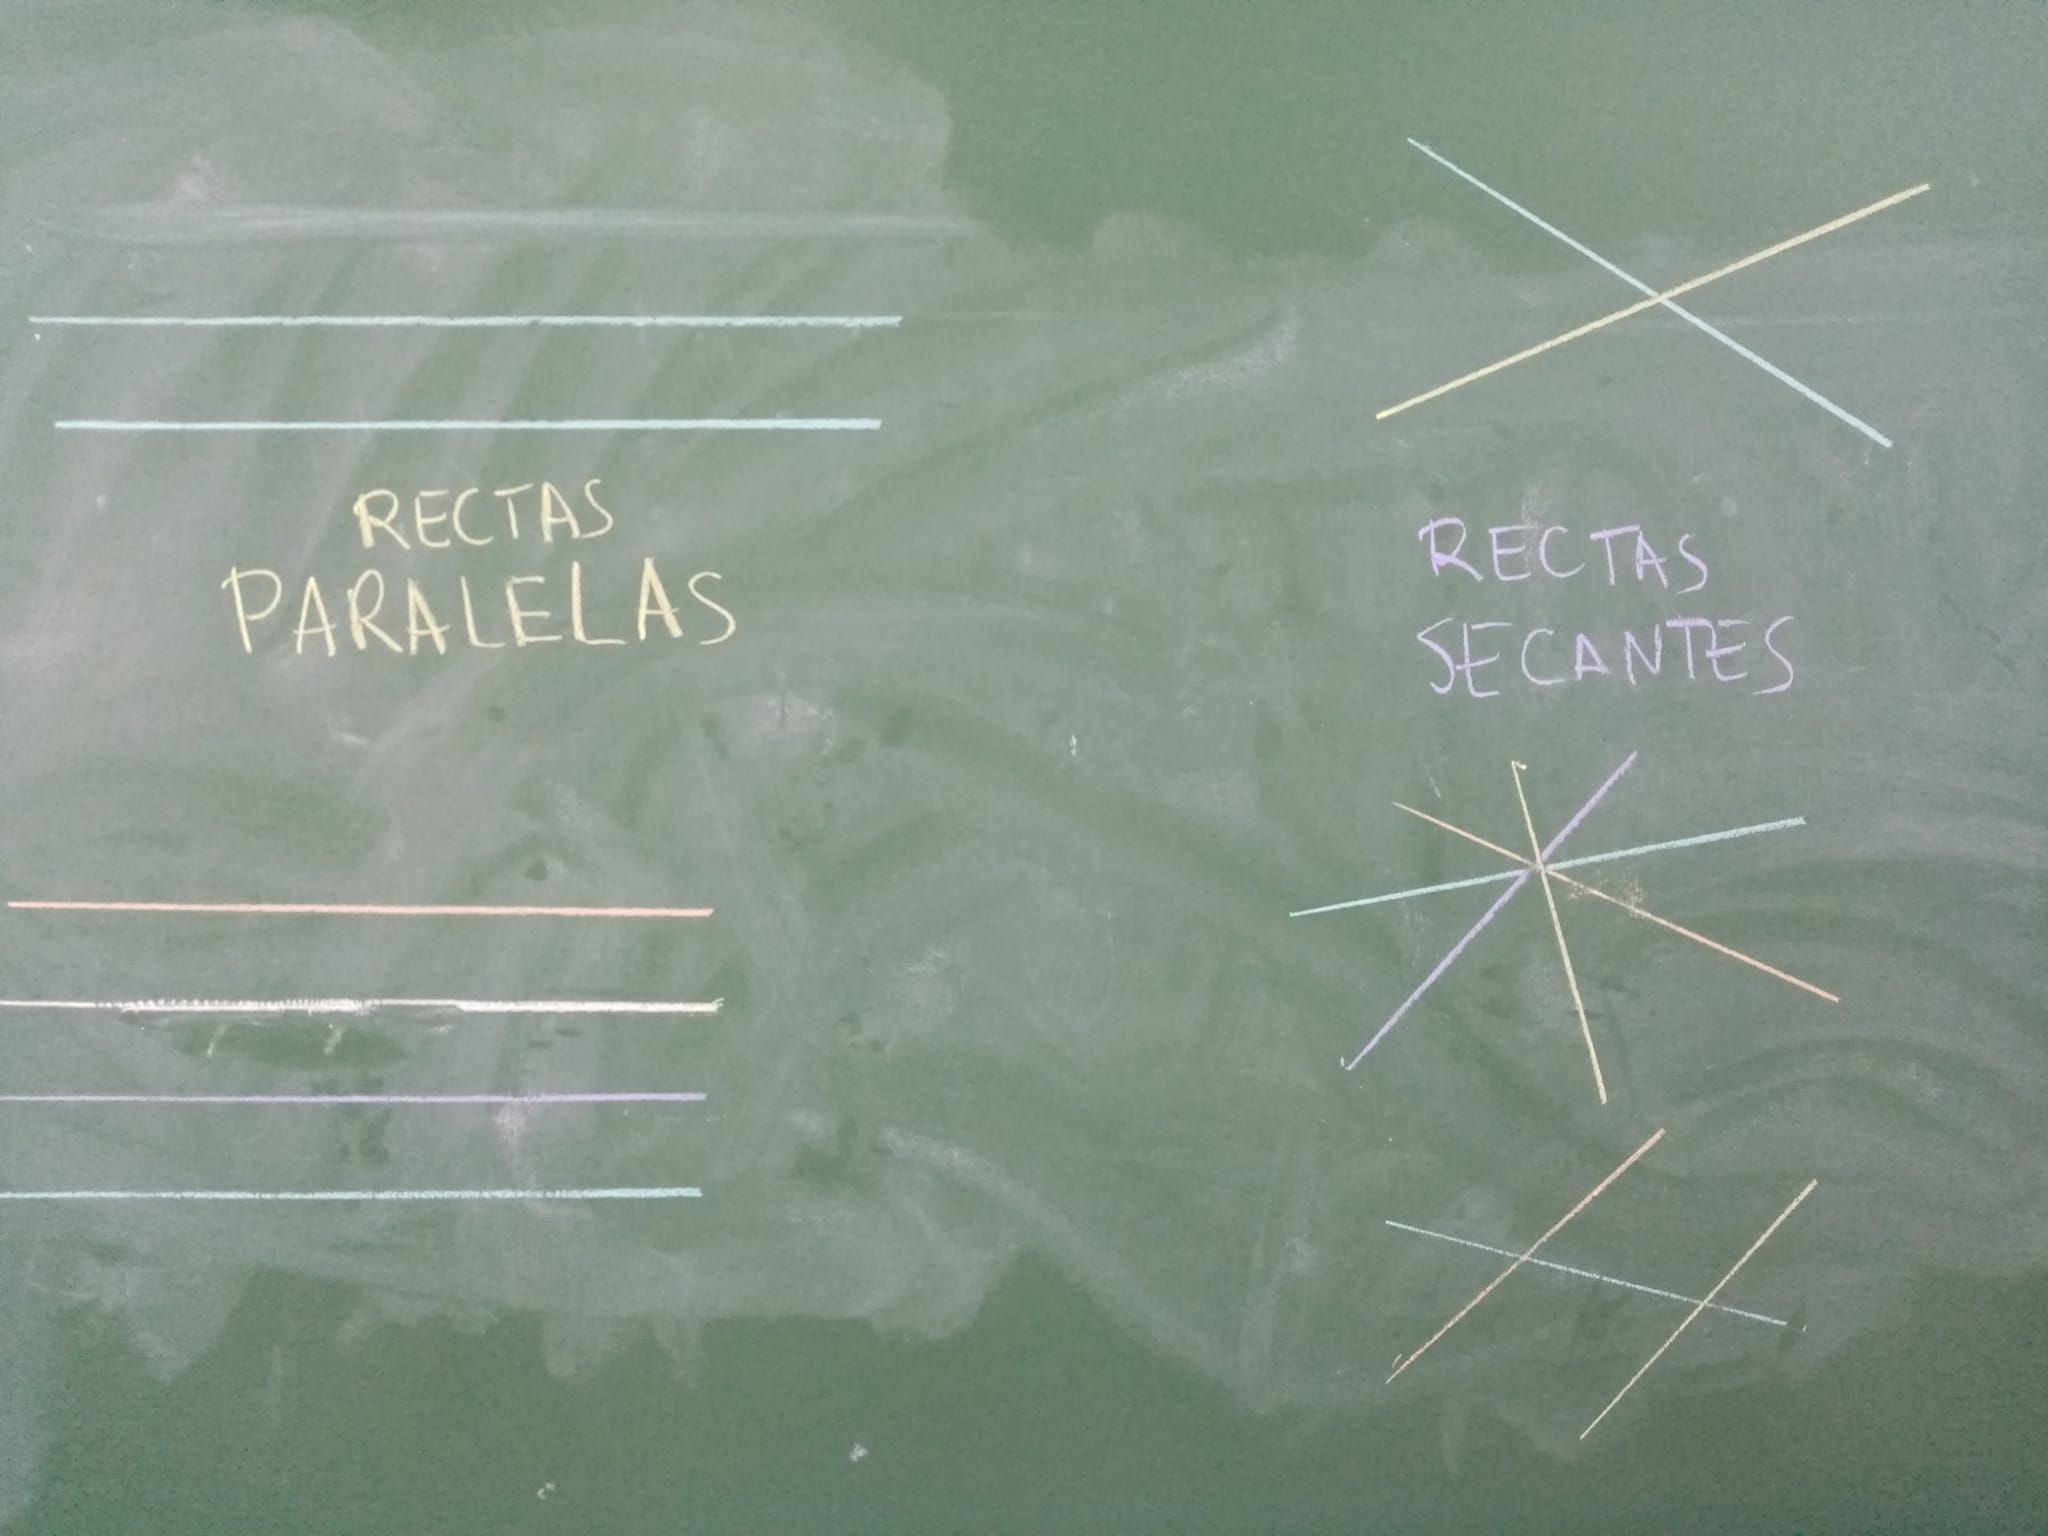 RECTAS
PARALELAS
RECTAS
SECANTES